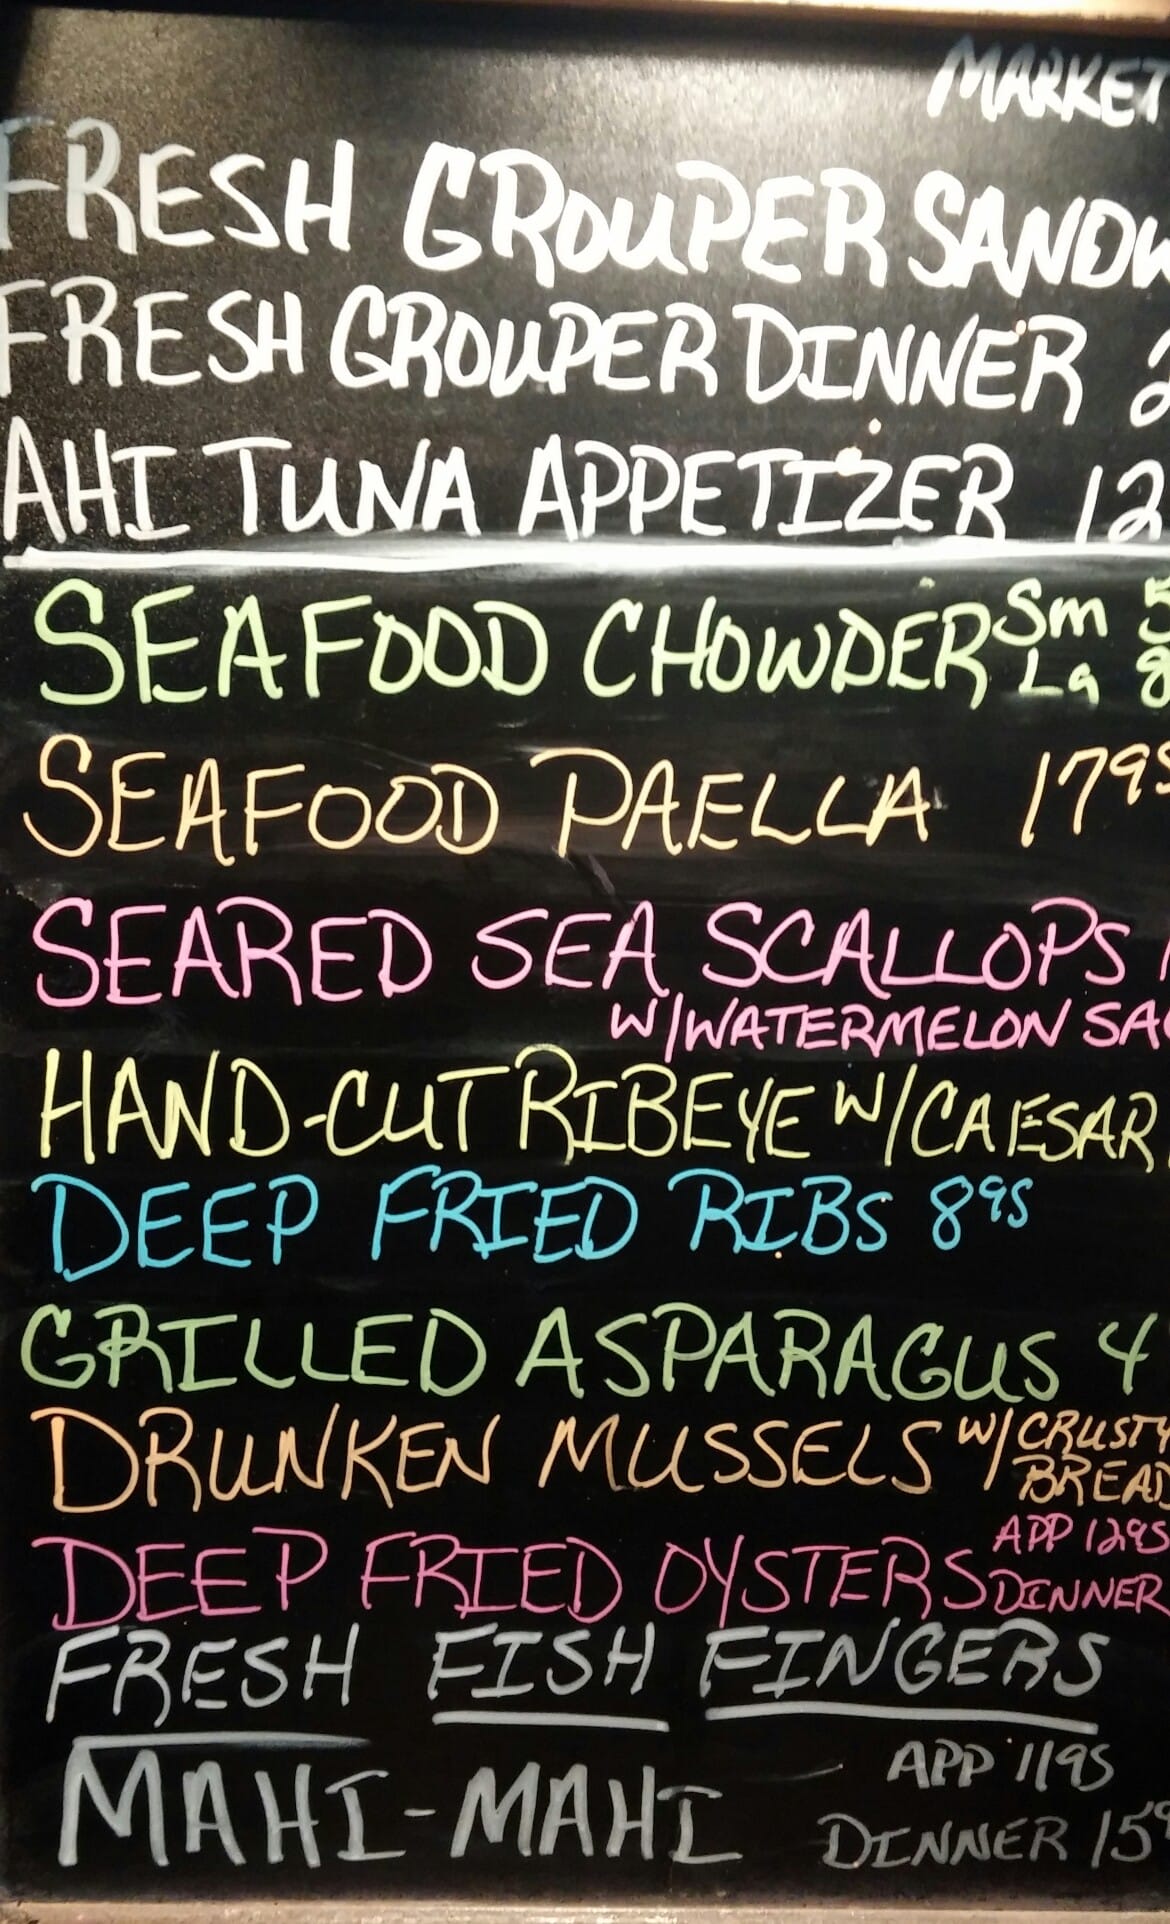 MARKET
FRESH GROUPER SANDW
FRESH GROUPER DINNER 2
AHI TUNA APPETIZER 12
SEAFOOD CHOWDER Sm 5
La 8
SEAFOOD PAELLA 1795
SEARED SEA SCALLOPS 1
W/WATERMELON SA
HAND-CUT RIBEYE W/CAESAR
DEEP FRIED RIBS 895
GRILLED ASPARAGUS 4
DRUNKEN MUSSELS W/CRUSTY
BREAD
DEEP FRIED OYSTERS APP 1295
DINNER
FRESH FISH FINGERS
MAHI-MAHI APP 1195
DINNER 159